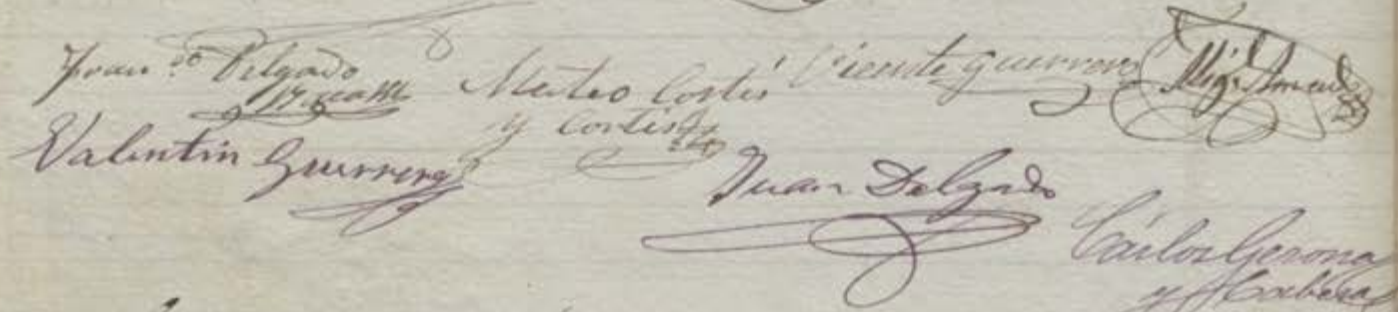 Fran.co Delgado Mateo Cortés Vicente Guerrero
y Cortés
Valentín Guerrero Juan Delgado
Cárlos Gerona
y